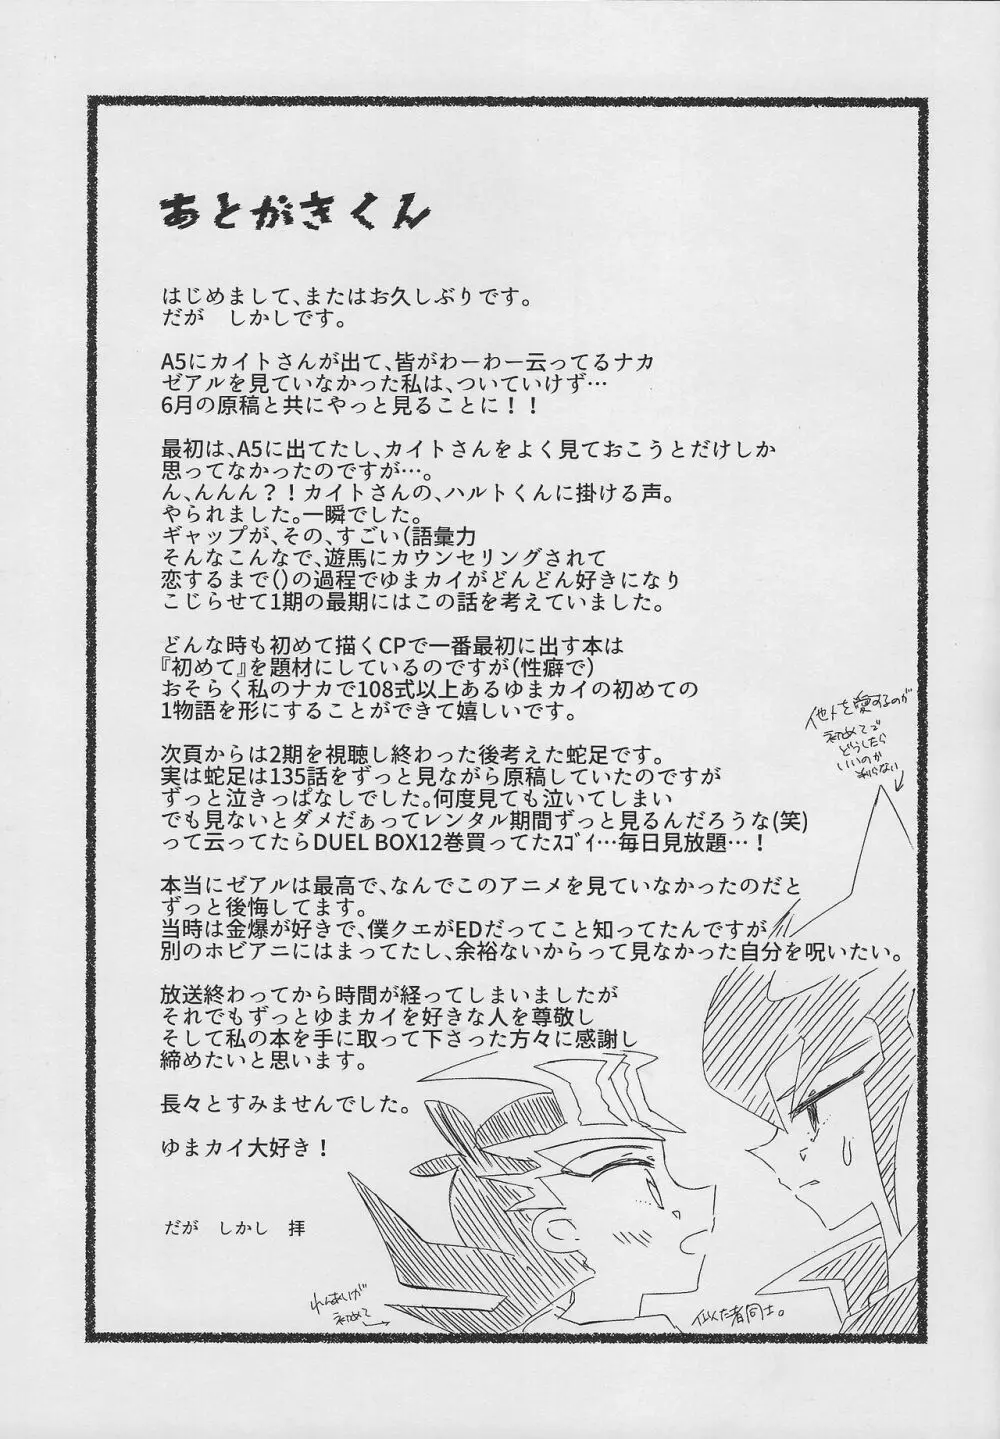 あとがきくん
はじめまして、またはお久しぶりです。
だが　しかしです。
A5にカイトさんが出て、皆がわーわー云ってるナカ
ゼアルを見ていなかった私は、ついていけず…
6月の原稿と共にやっと見ることに！！
最初は、A5に出てたし、カイトさんをよく見ておこうとだけしか
思ってなかったのですが…。
ん、んんん？！カイトさんの、ハルトくんに掛ける声。
やられました。一瞬でした。
ギャップが、その、すごい(語彙力
そんなこんなで、遊馬にカウンセリングされて
恋するまで()の過程でゆまカイがどんどん好きになり
こじらせて1期の最期にはこの話を考えていました。
どんな時も初めて描くCPで一番最初に出す本は
『初めて』を題材にしているのですが(性癖で)
おそらく私のナカで108式以上あるゆまカイの初めての
1物語を形にすることができて嬉しいです。
次頁からは2期を視聴し終わった後考えた蛇足です。
実は蛇足は135話をずっと見ながら原稿していたのですが
ずっと泣きっぱなしでした。何度見ても泣いてしまい
でも見ないとダメだぁってレンタル期間ずっと見るんだろうな(笑)
って云ってたらDUEL BOX12巻買ってたｽｺﾞｲ…毎日見放題…！
本当にゼアルは最高で、なんでこのアニメを見ていなかったのだと
ずっと後悔してます。
当時は金爆が好きで、僕クエがEDだってこと知ってたんですが
別のホビアニにはまってたし、余裕ないからって見なかった自分を呪いたい。
放送終わってから時間が経ってしまいましたが
それでもずっとゆまカイを好きな人を尊敬し
そして私の本を手に取って下さった方々に感謝し
締めたいと思います。
長々とすみませんでした。
ゆまカイ大好き！
だが　しかし　拝
他人を愛するのが
初めてで
どうしたら
いいのか
わからない
れんあいが
初めて
似た者同士。